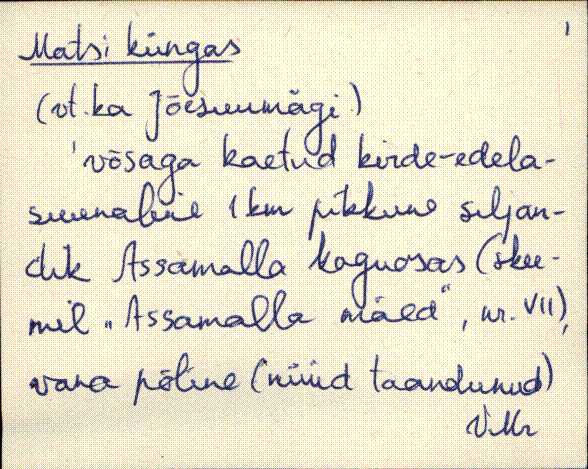 1
Matsi küngas
(vt. ka Jõesuumägi)
'võsaga kaetud kirde-edela-
suunaline 1 km pikkune seljan-
dik Assamalla kaguosas (skee-
mil „Assamalla mäed", nr. VII),
vana põline (nüüd taandunud)
V.Mr